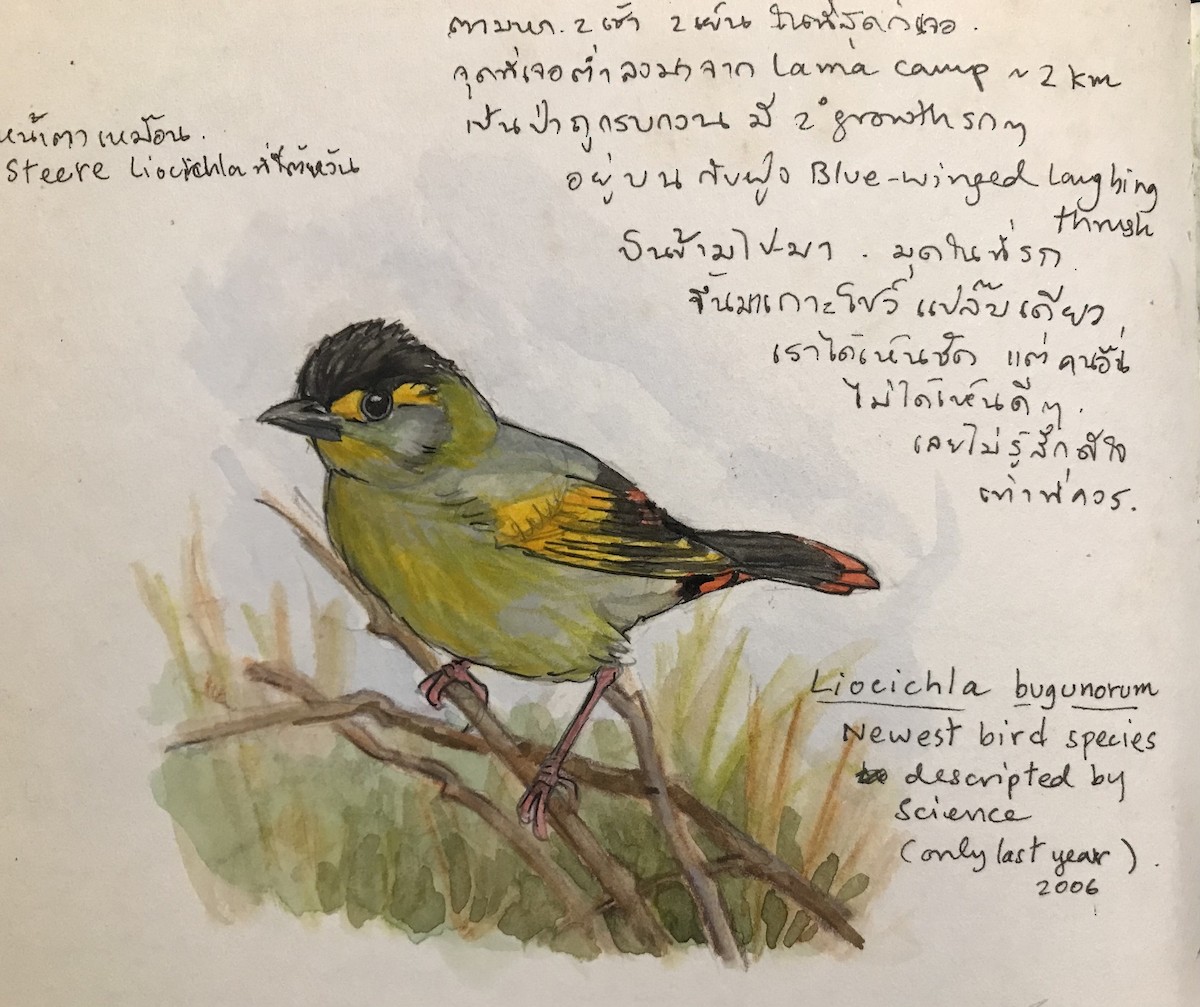 ตามหา. 2 เช้า 2 เย็น ในที่สุดก็เจอ.
จุดที่เจอต่ำลงมาจาก Lama camp ~ 2 km
เป็นป่าถูกรบกวน มี 2° growth รกๆ
อยู่บน กับฝูง Blue-winged Laughing
thrush
บินข้ามไป-มา . มุดในที่รก
ขึ้นมาเกาะโชว์ แป๊บเดียว
เราได้เห็นชัด แต่คนอื่น
ไม่ได้เห็นดีๆ.
เลยไม่รู้สึกดีใจ
เท่าที่ควร.
หน้าตาเหมือน.
Steere Liocichla ที่ไต้หวัน
Liocichla bugunorum
Newest bird species
descripted by
Science
(only last year) .
2006